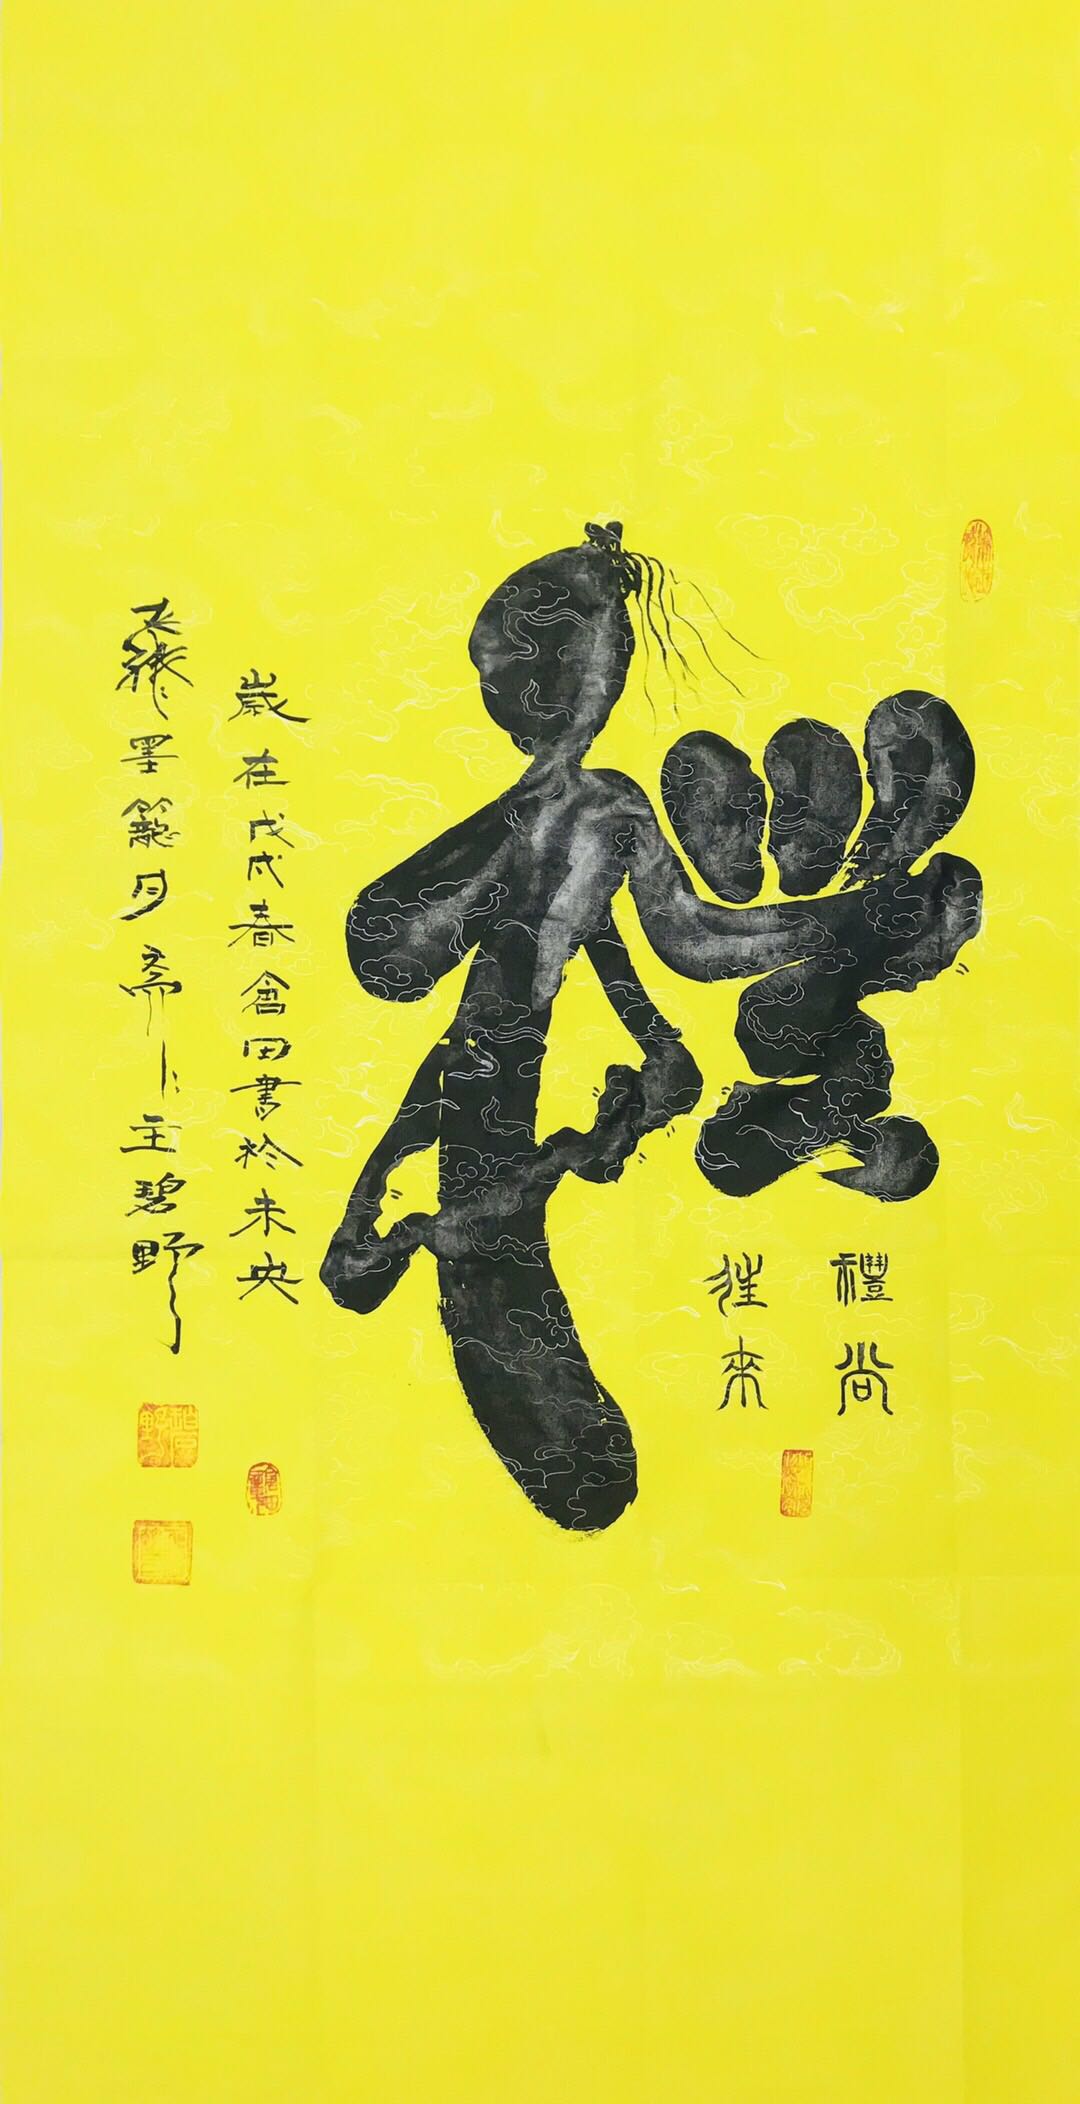 禮
禮尚
往來
歲在戊戌春倉田書於未央
墨龍月齋主碧野